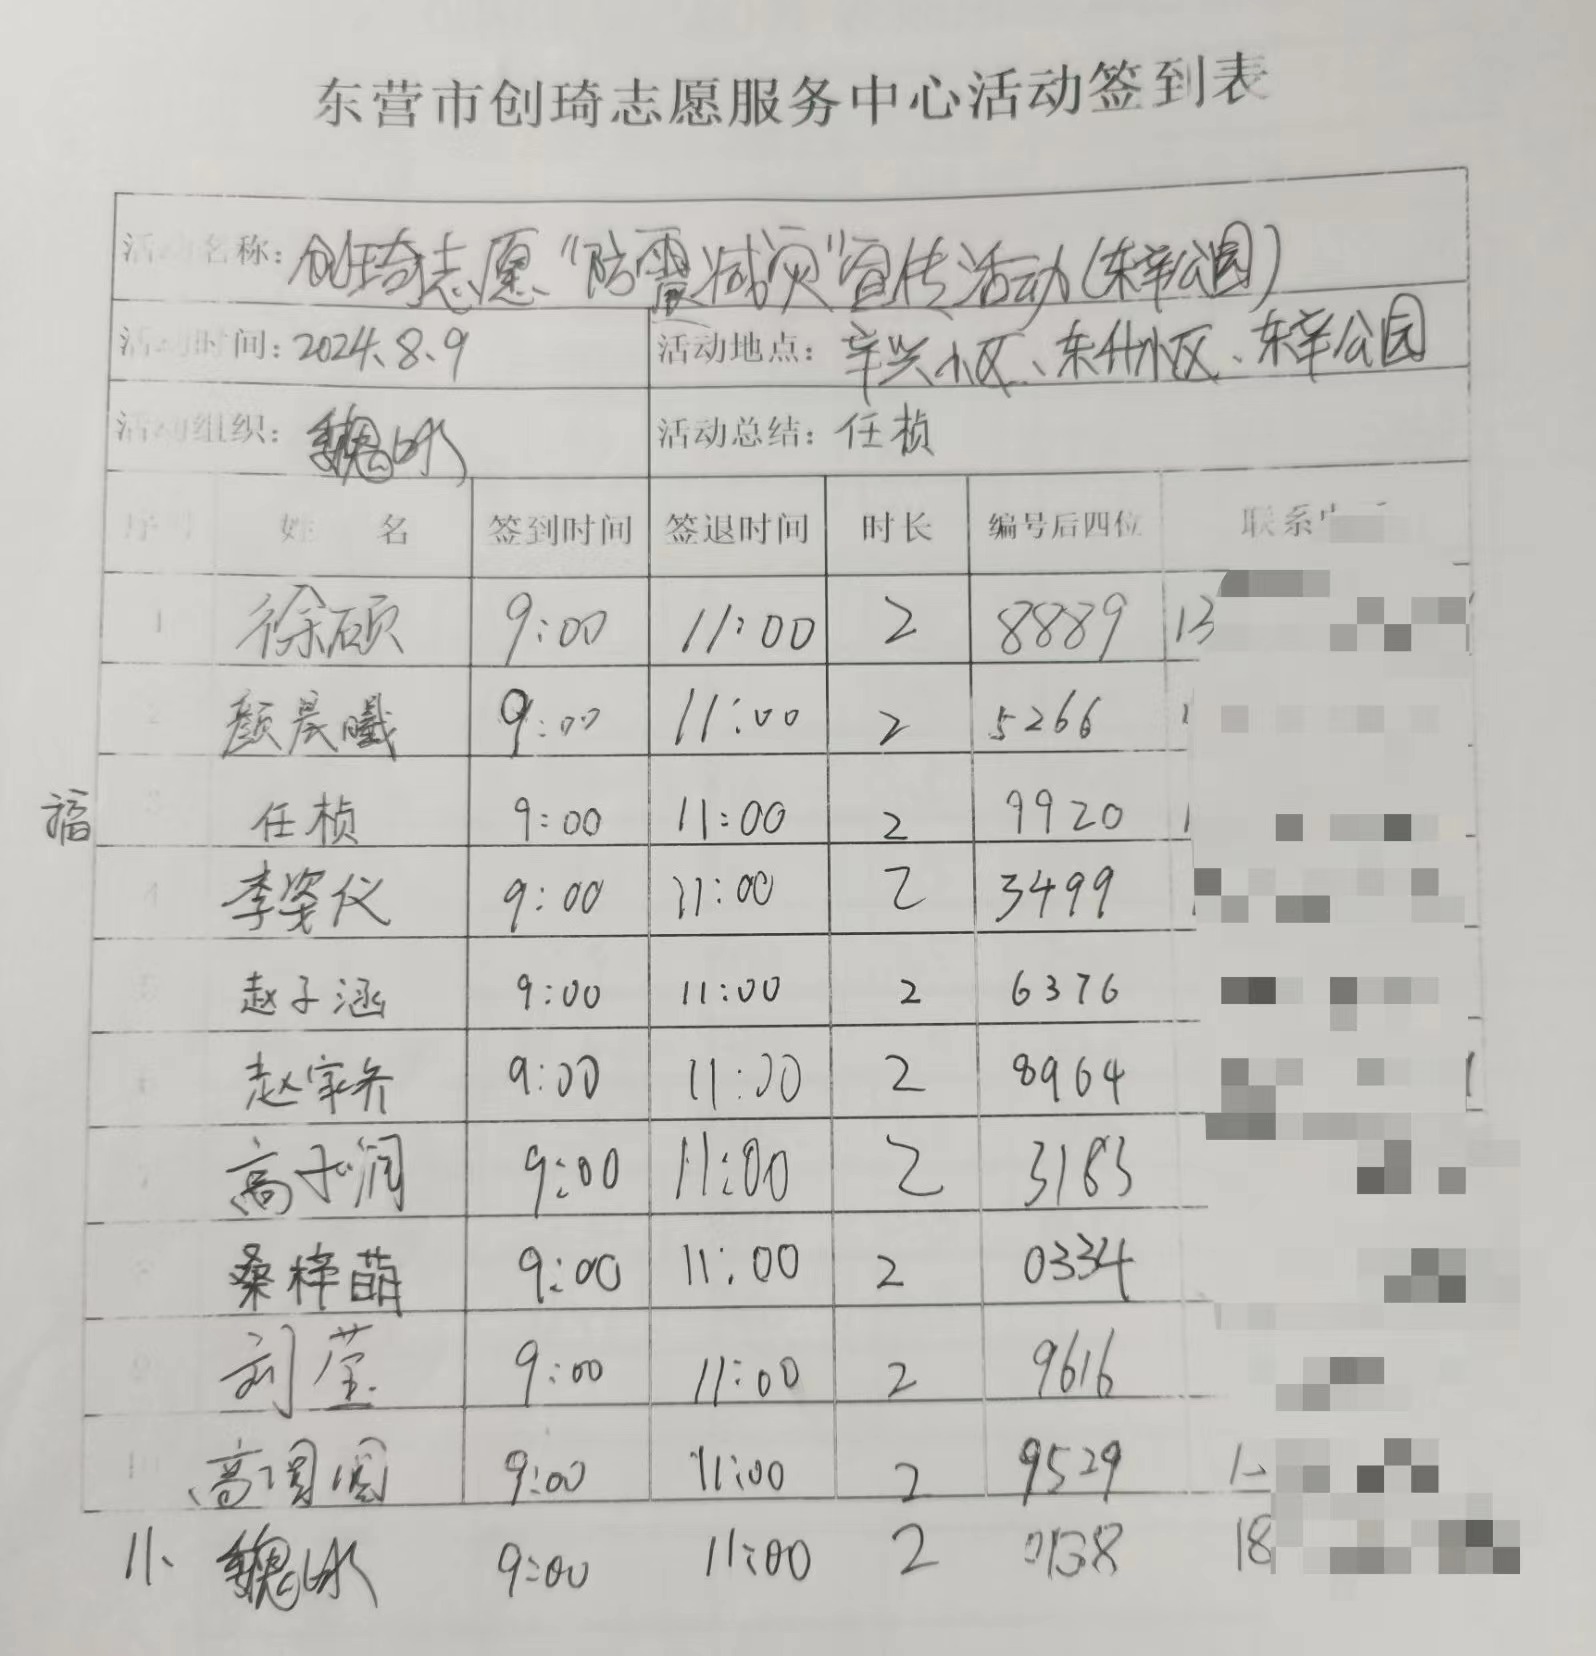 东营市创琦志愿服务中心活动签到表
活动名称：创琦志愿“防震减灾”宣传活动（东辛公园）
活动时间：2024.8.9 活动地点：辛兴小区、东升小区、东辛公园
活动组织：魏冰 活动总结：任桢
序列 姓名 签到时间 签退时间 时长 编号后四位 联系
1 徐硕 9:00 11:00 2 8889 13
2 颜晨曦 9:00 11:00 2 5266
福 3 任桢 9:00 11:00 2 9920
4 李姿仪 9:00 11:00 2 3499
5 赵子涵 9:00 11:00 2 6376
赵家齐 9:00 11:00 2 8964
7 高子润 9:00 11:00 2 3183
8 桑梓萌 9:00 11:00 2 0334
9 刘莹 9:00 11:00 2 9616
10 高圆圆 9:00 11:00 2 9529
11、魏冰 9:00 11:00 2 0138 18